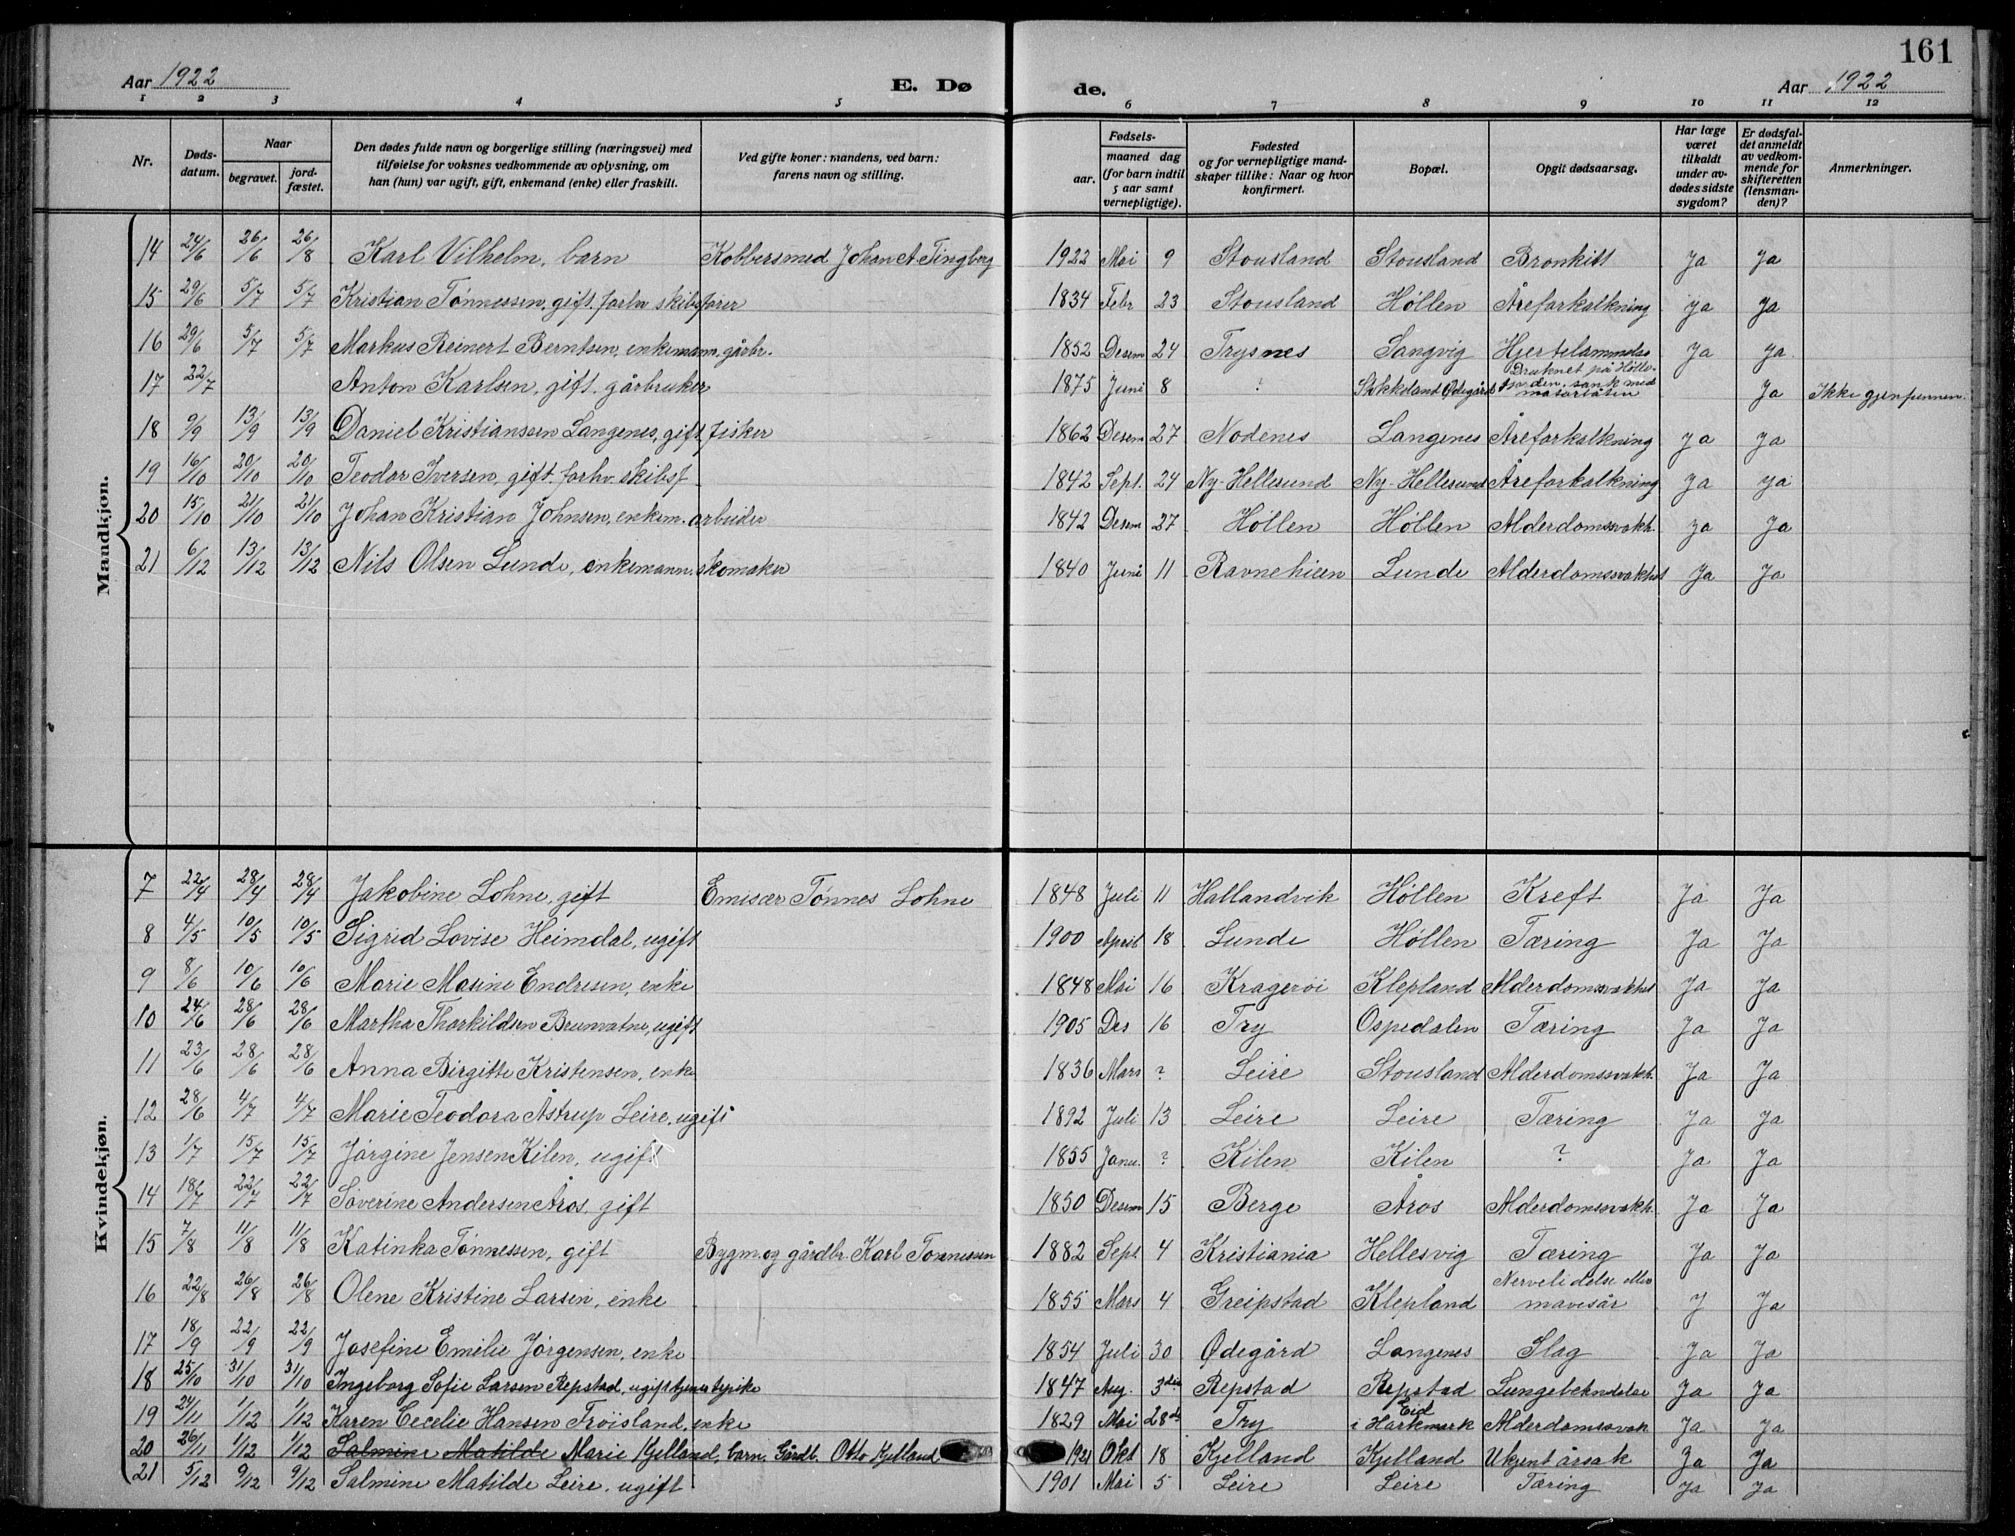 161
Aar 1922 E. Dø de. Aar 1922
1 2 3 4 5 6 7 8 9 10 11 12
Nr. Døds-datum. Naar begravet. jord-fæstet. Den dødes fulde navn og borgerlige stilling (næringsvei) med tilføielse for voksnes vedkommende av oplysning, om han (hun) var ugift, gift, enkemand (enke) eller fraskilt. Ved gifte koner: mandens, ved barn: farens navn og stilling. Fødsels- aar. maaned dag (for barn indtil 5 aar samt vernepligtige). Fødested og for vernepligtige mand-skaper tillike: Naar og hvor konfirmert. Bopæl. Opgit dødsaarsag. Har læge været tilkaldt under av-dødes sidste sygdom? Er dødsfal-det anmeldt av vedkom-mende for skifteretten (lensman-den)? Anmerkninger.
Mandkjøn.
14 24/6 26/6 26/8 Karl Vilhelm, barn Kobbersmed Johan A. Tingberg 1922 Mai 9 Stousland Stousland Bronkitt Ja Ja
15 29/6 5/7 5/7 Kristian Tønnessen, gift, forhv skibsfører 1834 Febr 23 Stousland Høllen Åreforkalkning Ja Ja
16 29/6 5/7 5/7 Markus Reinert Berntsen, enkemann, gårbr. 1852 Desem 24 Trysnes Langvig Hjertelammelse Ja Ja
17 22/7 Anton Karlsen, gift. gårbruker 1875 Juni 8 ? Stokkeland Ødegård Druknet på Hølle-fjorden, sank med motorbåten Ja Ikke gjenfunnen.
18 9/9 13/9 13/9 Daniel Kristianssen Langenes, gift, fisker 1862 Desem 27 Nodenes Langenes Åreforkalkning Ja Ja
19 16/10 20/10 20/10 Teodor Iversen, gift. forhv. skibsf 1842 Sept. 24 Ny-Hellesund Ny-Hellesund Åreforkalkning Ja Ja
20 15/10 21/10 21/10 Johan Kristian Johnsen, enkem. arbeider 1842 Desem 27 Høllen Høllen Alderdomssvakh. Ja Ja
21 6/12 13/12 13/12 Nils Olsen Lunde, enkemann. skomaker 1840 Juni 11 Ravneheien Lunde Alderdomssvakhet Ja Ja
Kvindekjøn.
7 22/4 28/4 28/4 Jakobine Lohne, gift Emisær Tønnes Lohne 1848 Juli 11 Hallandvik Høllen Kreft Ja Ja
8 4/5 10/5 10/5 Sigrid Lovise Heimdal, ugift 1900 April 18 Lunde Høllen Tæring Ja Ja
9 8/6 10/6 10/6 Marie Masine Endresen, enke 1848 Mai 16 Kragerøi Klepland Alderdomssvakhet Ja Ja
10 24/6 28/6 28/6 Martha Thorkildsen Brunvatne, ugift 1905 Des 16 Try Ospedalen Tæring Ja Ja
11 23/6 28/6 28/6 Anna Birgitte Kristensen, enke 1836 Mars ? Leire Stousland Alderdomssvakh. Ja Ja
12 28/6 4/7 4/7 Marie Teodora Astrup Leire, ugift 1892 Juli 13 Leire Leire Tæring Ja Ja
13 1/7 15/7 15/7 Jørgine Jensen Kilen, ugift 1855 Janu. ? Kilen Kilen ? Ja Ja
14 18/7 22/7 22/7 Søverine Andersen Åros, gift 1850 Desem 15 Berge Åros Alderdomssvakh. Ja Ja
15 7/8 11/8 11/8 Katinka Tønnessen, gift Bygm. og gårdbr. Karl Tønnessen 1882 Sept. 4 Kristiania Hellesvig Tæring Ja Ja
16 22/8 26/8 26/8 Olene Kristine Larsen, enke 1855 Mars 4 Greipstad Klepland Nervelidelse eller mavesår J Ja
17 18/9 22/9 22/9 Josefine Emilie Jørgensen, enke 1854 Juli 30 Ødegård Langenes Slag Ja Ja
18 25/10 31/10 31/10 Ingeborg Sofie Larsen Repstad, ugift tjenestepike 1847 Aug. 3die Repstad Repstad Lungebetendelse Ja Ja
19 24/11 1/12 1/12 Karen Cecelie Hansen Trøisland, enke 1829 Mai 28de Try Eid i Harkmark Alderdomssvak Ja Ja
20 26/11 1/12 1/12 Salmine Matilde Marie Kjelland, barn. Gårdb. Otto Kjelland 1921 Okt 18 Kjelland Kjelland Ukjent årsak Ja Ja
21 5/12 9/12 9/12 Salmine Matilde Leire, ugift 1901 Mai 5 Leire Leire Tæring Ja Ja